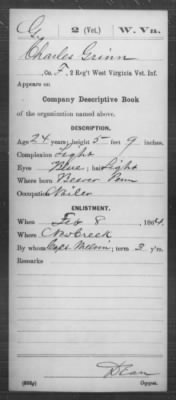 G 2 (Vet.) W. Va.
Charles Grinn
, Co. F, 2 Reg't West Virginia Vet. Inf.
Appears on
Company Descriptive Book
of the organization named above.
DESCRIPTION.
Age 24 years; height 5 feet 9 inches.
Complexion Light
Eyes Blue; hair Light
Where born Beaver Penn
Occupation Nailer
ENLISTMENT.
When Feb 8, 1864.
Where N. Creek
By whom Capt. Melvin; term 3 y'rs.
Remarks
Dean
Copyist.